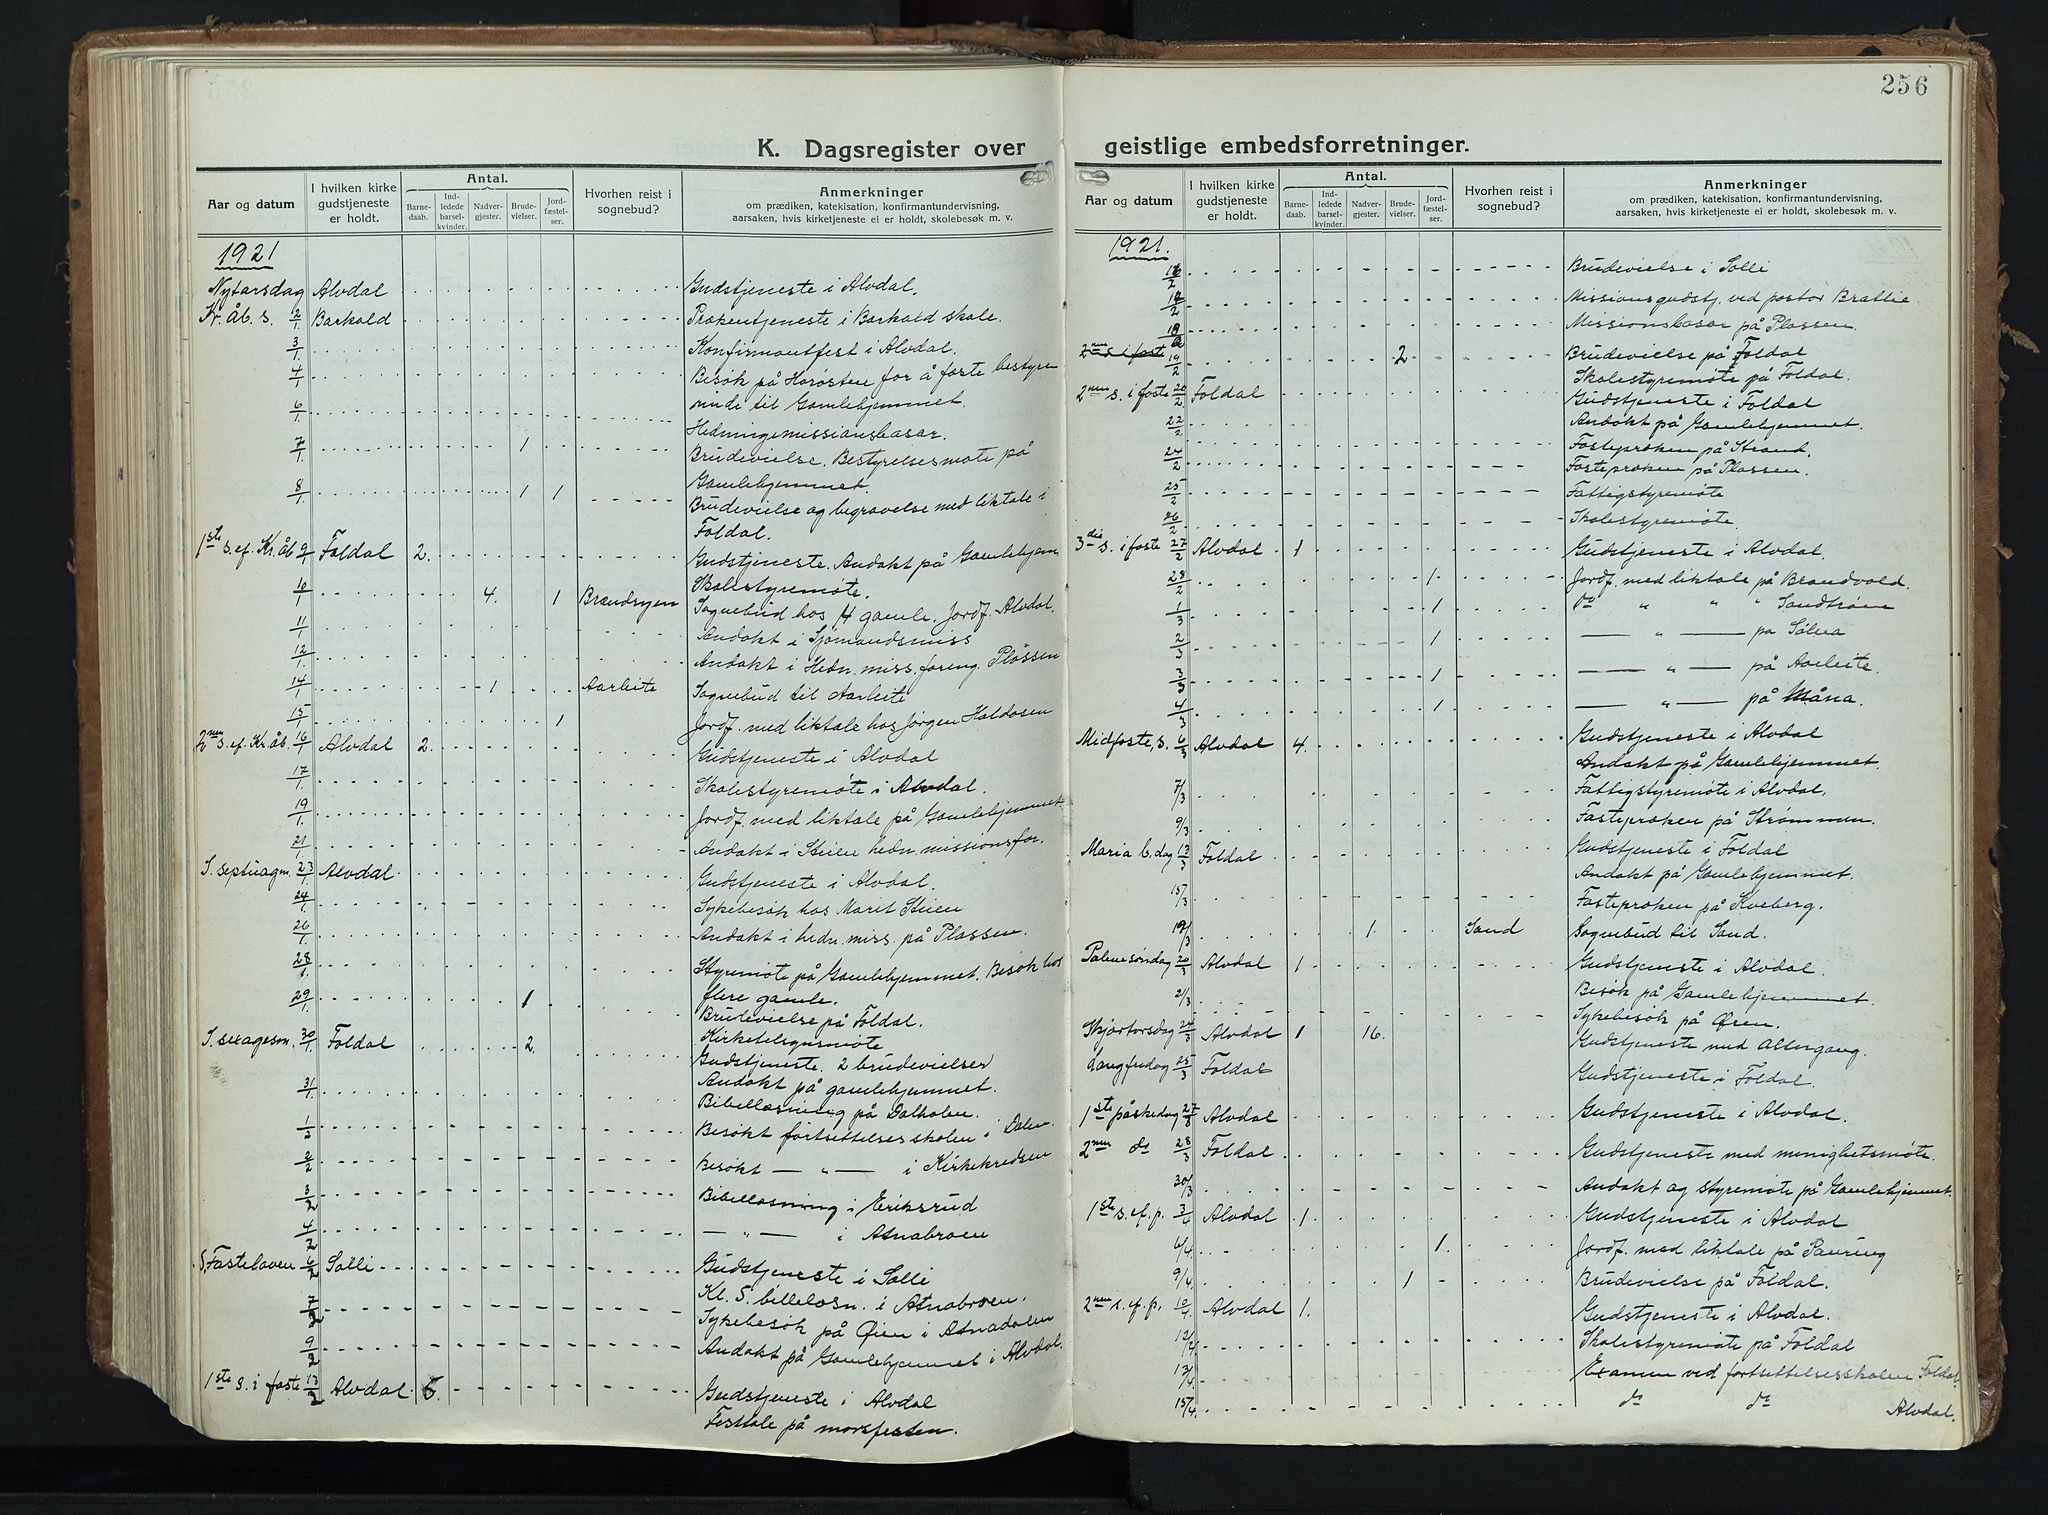 256
K. Dagsregister over
Aar og datum
I hvilken kirke gudstjeneste er holdt.
Antal.
Barne-daab.
Ind-ledede barsel-kvinder.
Nadver-gjester.
Brude-vielser.
Jord-fæstel-ser.
Hvorhen reist i sognebud?
Anmerkninger
om prædiken, katekisation, konfirmantundervisning,
aarsaken, hvis kirketjeneste ei er holdt, skolebesøk m. v.
1921
Nytårsdag Alvdal Gudstjeneste i Alvdal
Kr. åb. s. 2/1. Barkald Prækentjeneste i Barkald skole.
3/1. Konfirmantfest i Alvdal.
4/1 Besøk på Horøsten for å fæste bestyre
rinde til Gamlehjemmet.
6/1. Hedningemissionsbasar.
7/1. 1 Brudevielse. Bestyrelsesmøte på
Gamlehjemmet.
8/1. 1 1 Brudevielse og begravelse med liktale i
Foldal.
1ste s. ef. Kr. åb. 9/1 Foldal 2. Gudstjeneste. Andakt på Gamlehjem
Skolestyremøte.
10/1 4. 1 Brændsyen Sognebud hos 4 gamle. Jordf. Alvdal.
11/1 Andakt i Sjømandsmiss
12/1. Andakt i Hedn. miss. foreng. Plassen
14/1 1 Aarleite Sognebud til Aarleite
15/1 1 Jordf. med liktale hos Jørgen Haldosen
2nen s. ef. Kr. åb. 16/1 Alvdal 2. Gudstjeneste i Alvdal
17/1. Skolestyremøte i Alvdal.
19/1. Jordf. med liktale på Gamlehjemmet.
21/1 Andakt i Steien hedn. missionsfor.
S. septuagm. 23/1. Alvdal Gudstjeneste i Alvdal.
24/1. Sykebesøk hos Marit Steien
26/1. Andakt i hedn. miss. på Plassen.
28/1. Styremøte på Gamlehjemmet. Besøk hos
flere gamle.
29/1. 1 Brudevielse på Foldal.
Kirketilsynsmøte
S. sexagesm. 30/1. Foldal 2. Gudstjeneste. 2 brudevielser
Andakt på gamlehjemmet.
31/1. Bibellæsning på Dalholen.
1/2 Besøkt fortsættelsesskolen i Dalen.
2/2 Besøkt — " — i Kirkekredsen
3/2 Bibellæsning i Eriksrud
4/2 — " — i Atnabroen
S. Fastelaven 6/2 Solli Gudstjeneste i Solli
7/2 Kl. 5. billelæsn. i Atnabroen.
Sykebesøk på Øien i Atnadalen
9/2 Andakt på Gamlehjemmet i Alvdal.
1ste s. i faste 13/2 Alvdal 6. Gudstjeneste i Alvdal
Festtale på morsfesten.
geistlige embedsforretninger.
Aar og datum
I hvilken kirke gudstjeneste er holdt.
Antal.
Barne-daab.
Ind-ledede barsel-kvinder.
Nadver-gjester.
Brude-vielser.
Jord-fæstel-ser.
Hvorhen reist i sognebud?
Anmerkninger
om prædiken, katekisation, konfirmantundervisning,
aarsaken, hvis kirketjeneste ei er holdt, skolebesøk m. v.
1921.
16/2 Brudevielse i Solli
/2 Missionsgudstj. ved pastor Brattlie
18/2 Missionsbasar på Plassen.
2nen s i faste 19/2 2 Brudevielse på Foldal
Skolestyremøte på Foldal.
2nen s. i faste 20/2 Foldal Gudstjeneste i Foldal
22/2 Andakt på Gamlehjemmet.
Fastepræken på Strand.
24/2 Fastepræken på Plassen.
25/2 Fattigstyremøte
26/2 Skolestyremøte.
3die s. i faste 27/2 Alvdal 1 Gudstjeneste i Alvdal.
28/2 1 Jordf. med liktale på Brandvold.
1/3 1 do " " " Sandtrøen
2/3 1 — " — på Sølna
3/3 1 — " — på Aarleite.
4/3 1 — " — på Måna
Midfaste, s. 6/3 Alvdal 4. Gudstjeneste i Alvdal
Andakt på Gamlehjemmet.
7/3 Fattigstyremøte i Alvdal.
9/3 Fastepræken på Strømmen.
Maria b. dag 13/3 Foldal Gudstjeneste i Foldal
Andakt på Gamlehjemmet.
15/3 Fastepræken på Kveberg.
19/3 1. Sand Sognebud til Sand.
Palmesøndag 20/3 Alvdal 1 Gudstjeneste i Alvdal.
21/3 Besøk på Gamlehjemmet.
Sykebesøk på Øien.
Skjærtorsdag 24/3 Alvdal 1 16. Gudstjeneste med Altergang.
Langfredag 25/3 Foldal Gudstjeneste i Foldal.
1ste påskedag 27/3 Alvdal Gudstjeneste i Alvdal.
2nen do 28/3 Foldal Gudstjeneste med menighetsmøte.
30/3 Andakt og styremøte på Gamlehjemmet.
1ste s. ef. p. 3/4 Alvdal 1. Gudstjeneste i Alvdal
6/4. 1. Jordf. med liktale på Pauring
9/4. 1 Brudevielse på Foldal.
2nen s. ef. p. 10/4 Alvdal 1. Gudstjeneste i Alvdal.
12/4. Skolestyremøte på Foldal
13/4. Examen ved fortsættelsesskolen Foldal.
15/4. do do Alvdal.